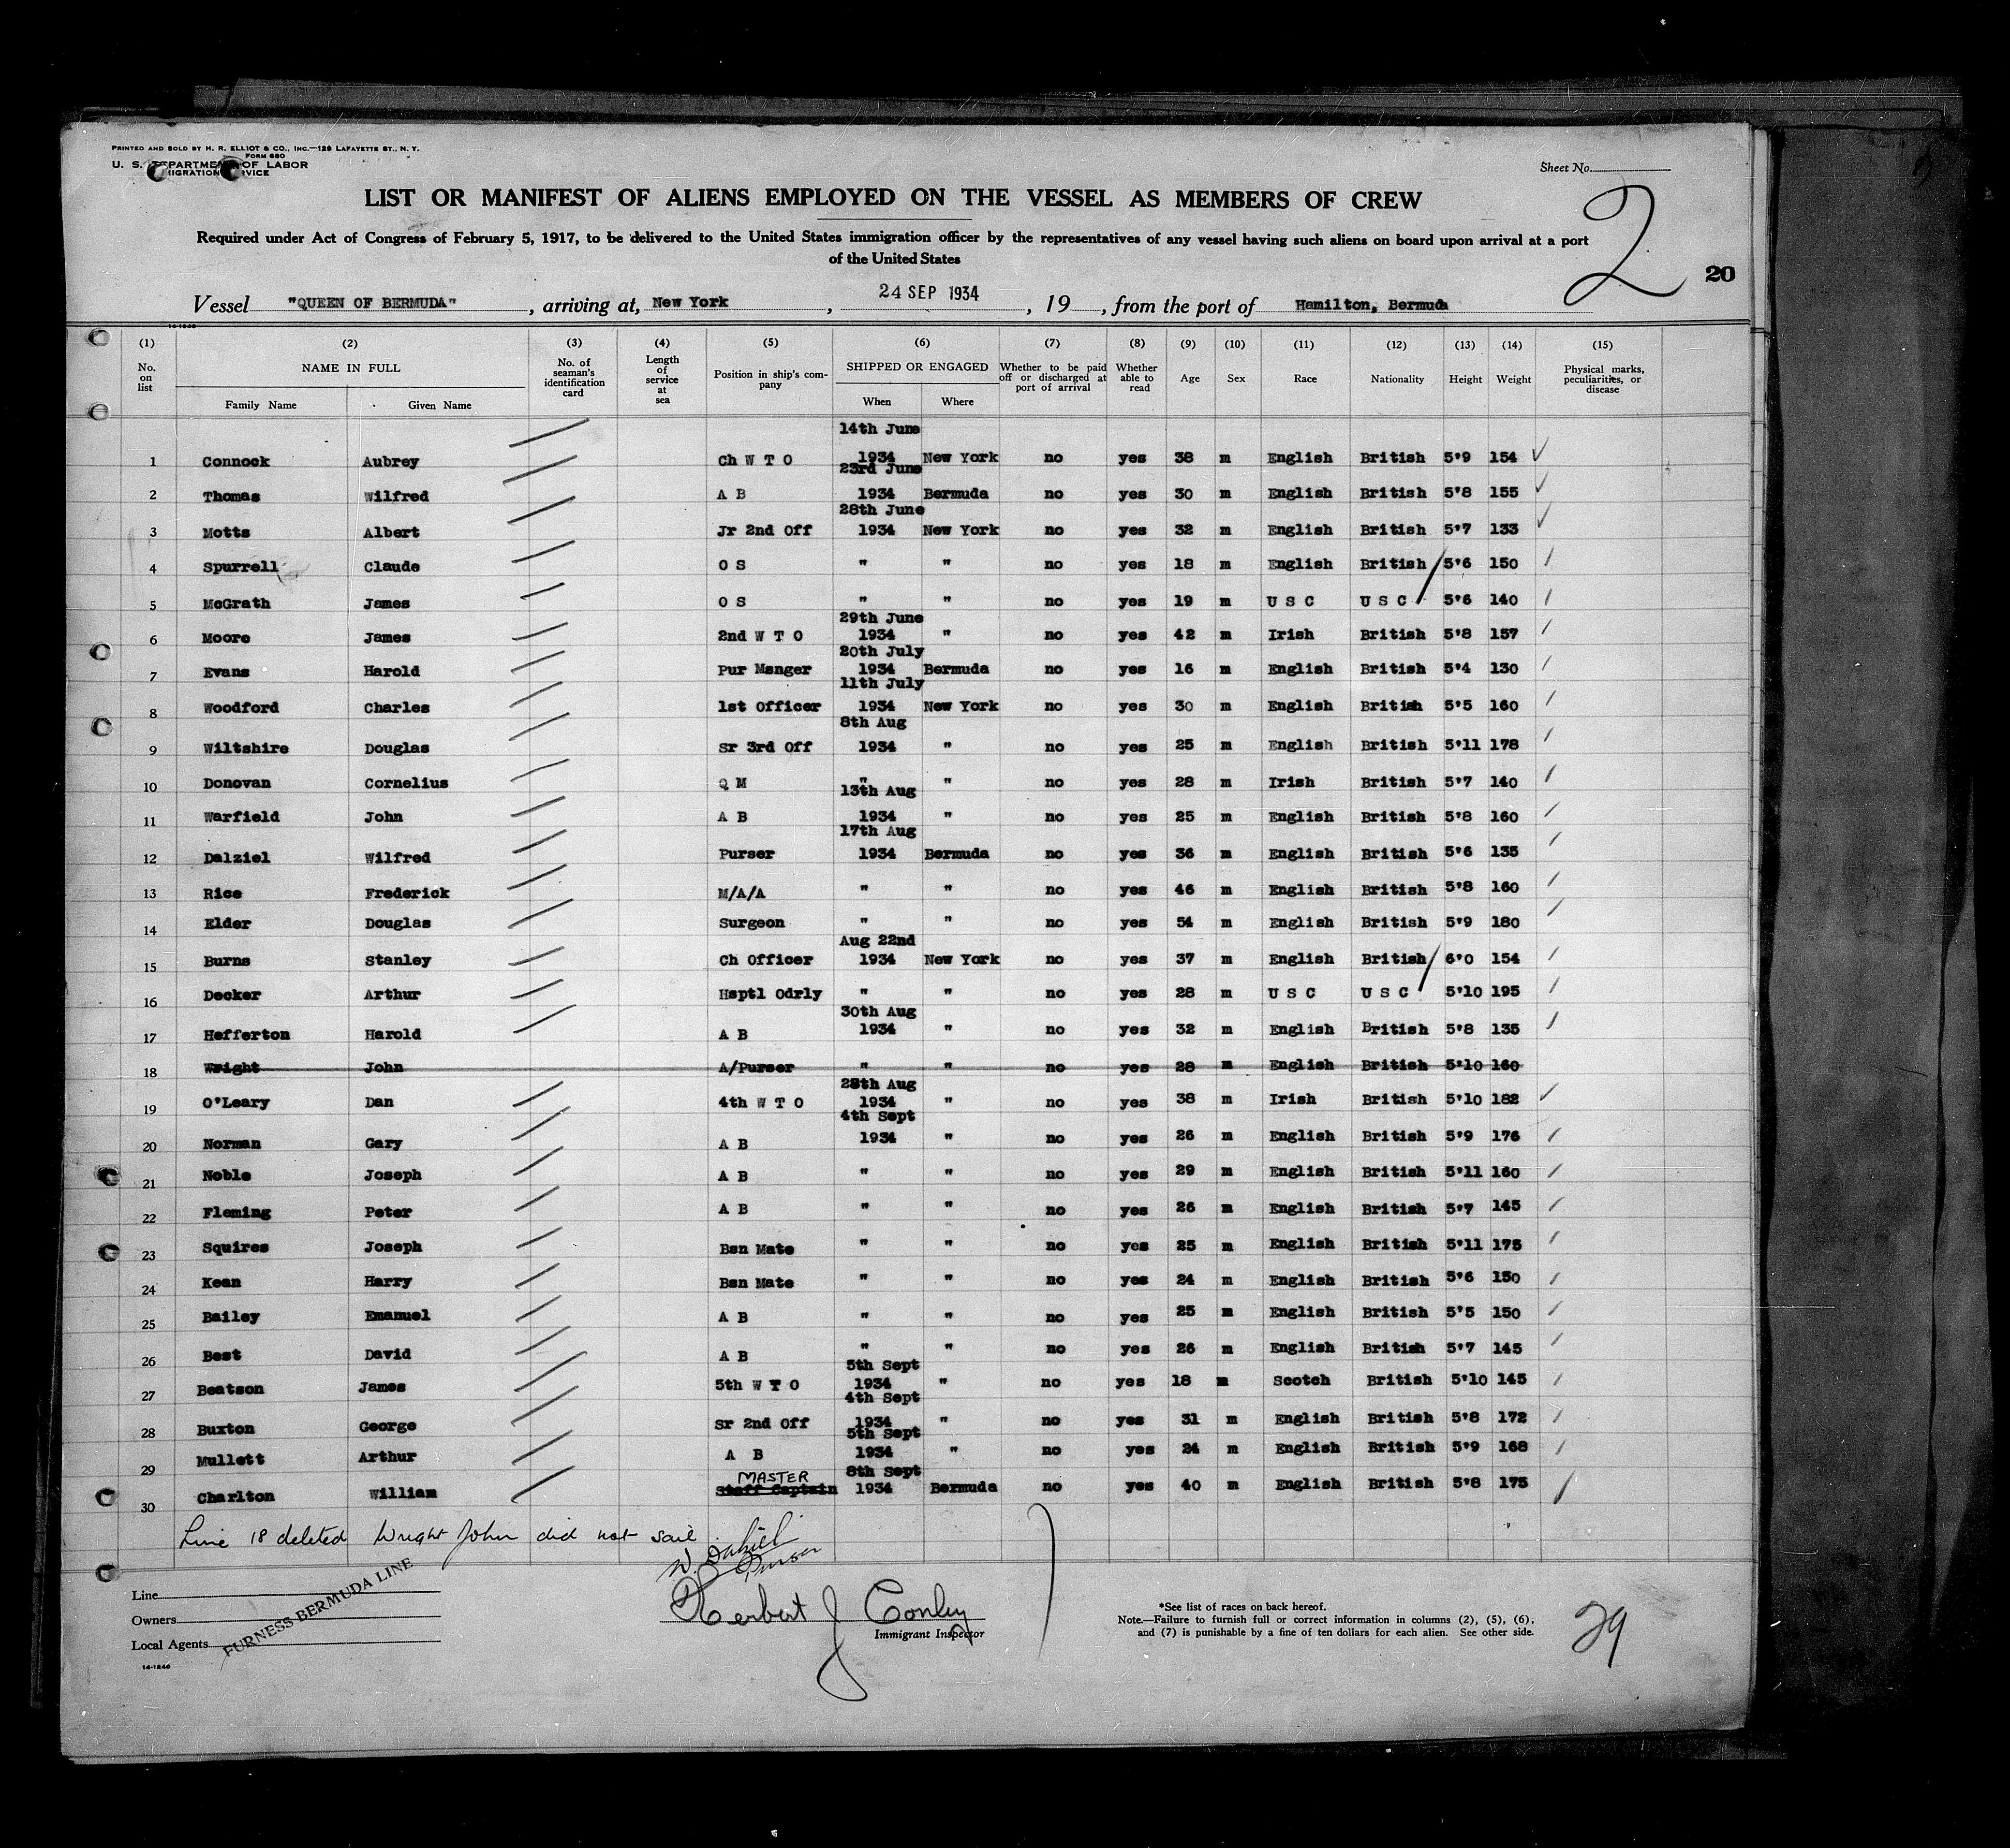 PRINTED AND SOLD BY H. R. ELLIOT & CO., INC.—129 LAFAYETTE ST., N. Y.
FORM 680
U. S. DEPARTMENT OF LABOR
IMMIGRATION SERVICE
Sheet No.
LIST OR MANIFEST OF ALIENS EMPLOYED ON THE VESSEL AS MEMBERS OF CREW
2
Required under Act of Congress of February 5, 1917, to be delivered to the United States immigration officer by the representatives of any vessel having such aliens on board upon arrival at a port
of the United States
20
Vessel "QUEEN OF BERMUDA", arriving at, New York, 24 SEP 1934, 19, from the port of Hamilton, Bermuda
14-1240
(1) (2) (3) (4) (5) (6) (7) (8) (9) (10) (11) (12) (13) (14) (15)
No. on list NAME IN FULL No. of seaman's identification card Length of service at sea Position in ship's company SHIPPED OR ENGAGED Whether to be paid off or discharged at port of arrival Whether able to read Age Sex Race Nationality Height Weight Physical marks, peculiarities, or disease
Family Name Given Name When Where
14th June
1 Connock Aubrey Ch W T O 1934 New York no yes 38 m English British 5'9 154
23rd June
2 Thomas Wilfred A B 1934 Bermuda no yes 30 m English British 5'8 155
28th June
3 Motts Albert Jr 2nd Off 1934 New York no yes 32 m English British 5'7 133
4 Spurrell Claude O S " " no yes 18 m English British 5'6 150
5 McGrath James O S " " no yes 19 m U S C U S C 5'6 140
29th June
6 Moore James 2nd W T O 1934 " no yes 42 m Irish British 5'8 157
20th July
7 Evans Harold Pur Msnger 1934 Bermuda no yes 16 m English British 5'4 130
11th July
8 Woodford Charles 1st Officer 1934 New York no yes 30 m English British 5'5 160
8th Aug
9 Wiltshire Douglas Sr 3rd Off 1934 " no yes 25 m English British 5'11 178
10 Donovan Cornelius Q M " " no yes 28 m Irish British 5'7 140
13th Aug
11 Warfield John A B 1934 " no yes 25 m English British 5'8 160
17th Aug
12 Dalziel Wilfred Purser 1934 Bermuda no yes 36 m English British 5'6 135
13 Rice Frederick M/A/A " " no yes 46 m English British 5'8 160
14 Elder Douglas Surgeon " " no yes 54 m English British 5'9 180
Aug 22nd
15 Burns Stanley Ch Officer 1934 New York no yes 37 m English British 6'0 154
16 Decker Arthur Hsptl Odrly " " no yes 28 m U S C U S C 5'10 195
30th Aug
17 Hefferton Harold A B 1934 " no yes 32 m English British 5'8 135
18 Wright John A/Purser " " no yes 28 m English British 5'10 160
28th Aug
19 O'Leary Dan 4th W T O 1934 " no yes 38 m Irish British 5'10 182
4th Sept
20 Norman Gary A B 1934 " no yes 26 m English British 5'9 176
21 Noble Joseph A B " " no yes 29 m English British 5'11 160
22 Fleming Peter A B " " no yes 26 m English British 5'7 145
23 Squires Joseph Bsn Mate " " no yes 25 m English British 5'11 175
24 Kean Harry Bsn Mate " " no yes 24 m English British 5'6 150
25 Bailey Emanuel A B " " no yes 25 m English British 5'5 150
26 Best David A B " " no yes 26 m English British 5'7 145
5th Sept
27 Beatson James 5th W T O 1934 " no yes 18 m Scotch British 5'10 145
4th Sept
28 Buxton George Sr 2nd Off 1934 " no yes 31 m English British 5'8 172
5th Sept
29 Mullett Arthur A B 1934 " no yes 24 m English British 5'9 168
MASTER 8th Sept
30 Charlton William Staff Captain 1934 Bermuda no yes 40 m English British 5'8 175
Line 18 deleted Wright John did not sail
W. Dalziel
Purser
Line
Owners
Local Agents
FURNESS BERMUDA LINE
14-1240
Herbert J Conley
Immigrant Inspector
*See list of races on back hereof.
Note.—Failure to furnish full or correct information in columns (2), (5), (6),
and (7) is punishable by a fine of ten dollars for each alien. See other side.
29